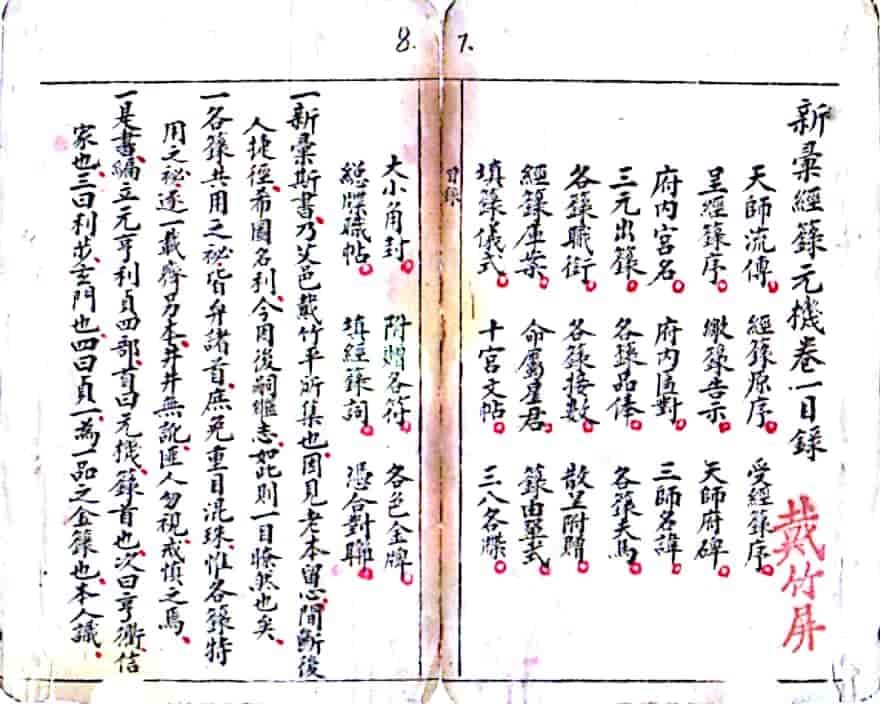 8. 7.
新彙經籙元機卷一目錄
戴竹屏
天師流傳。 經籙原序。 受經籙序。
呈經籙序。 繳籙告示。 天師府碑。
府内宫名。 府内匾對。 三師名諱。
三元出籙。 各籙品俸。 各籙夫馬。
各籙職銜。 各籙接數。 散呈附贈。
經籙庫案。 命屬星君。 籙由單式。
填籙儀式。 十宮文帖。 三八各牒。
目錄
大小角封。 附贈各符。 各色金牌。
總牒職帖。 填經籙詞。 憑合對聯。
一新彙斯書、乃艾邑戴竹平所集也、因見老本留心間斷後
人捷徑、希圖名利、今周後嗣繼志、如此則一目瞭然也矣、
一各籙共用之秘皆弁諸首、庶免重目混珠、惟各籙特
用之秘、逐一載齊另本、井井無訛、匪人勿視、戒慎之焉、
一是書、編立元亨利貞四部、首曰元機、籙首也、次曰亨衢、信
家也、三曰利步、玄門也、四曰貞一、為一品之金籙也、本人識、